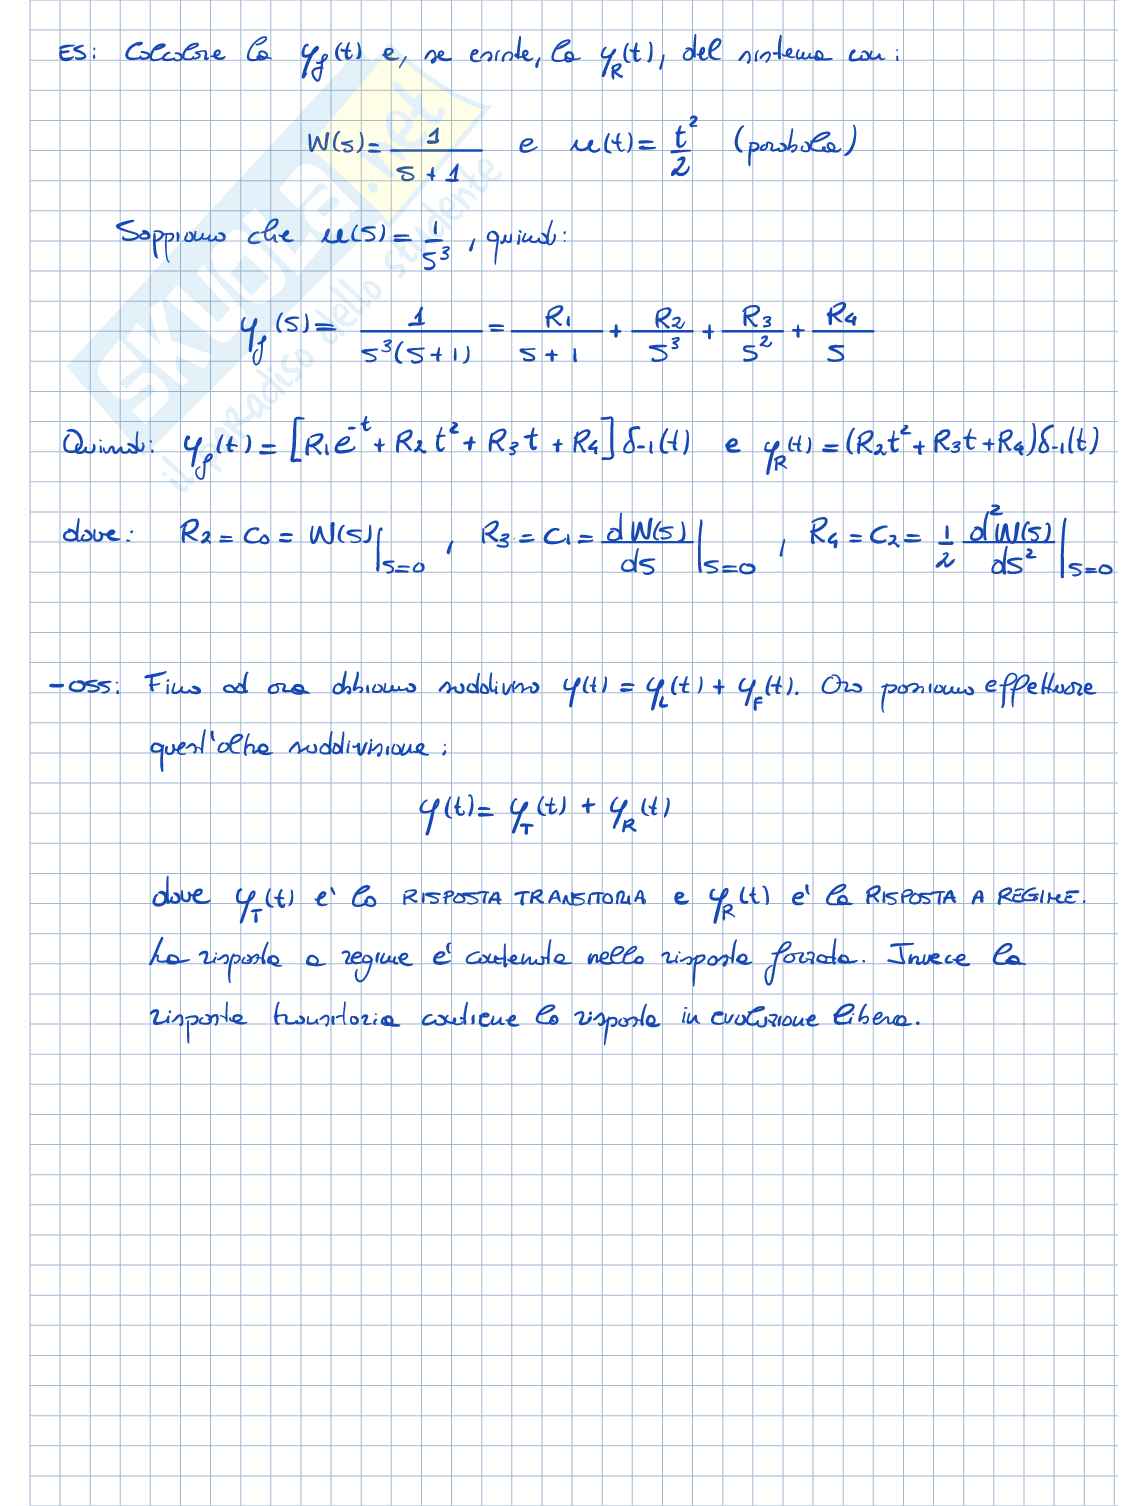 ES: Calcolare la y_f(t) e, se esiste, la y_R(t), del sistema con:
W(s) = 1/(s+1) e u(t) = t²/2 (parabola)
Sappiamo che u(s) = 1/s³, quindi:
y_f(s) = 1/(s³(s+1)) = R₁/(s+1) + R₂/s³ + R₃/s² + R₄/s
Quindi: y_f(t) = [R₁e^-t + R₂t² + R₃t + R₄] δ₋₁(t) e y_R(t) = (R₂t² + R₃t + R₄)δ₋₁(t)
dove: R₂ = C₀ = W(s)|s=0, R₃ = C₁ = dW(s)/ds|s=0, R₄ = C₂ = 1/2 d²W(s)/ds²|s=0
- OSS: Fino ad ora abbiamo suddiviso y(t) = y_L(t) + y_F(t). Ora possiamo effettuare
quest'altra suddivisione:
y(t) = y_T(t) + y_R(t)
dove y_T(t) e' la RISPOSTA TRANSITORIA e y_R(t) e' la RISPOSTA A REGIME.
La risposta a regime e' contenuta nella risposta forzata. Invece la
risposta transitoria contiene la risposta in evoluzione libera.
SKUOLA.net
il paradiso dello studente